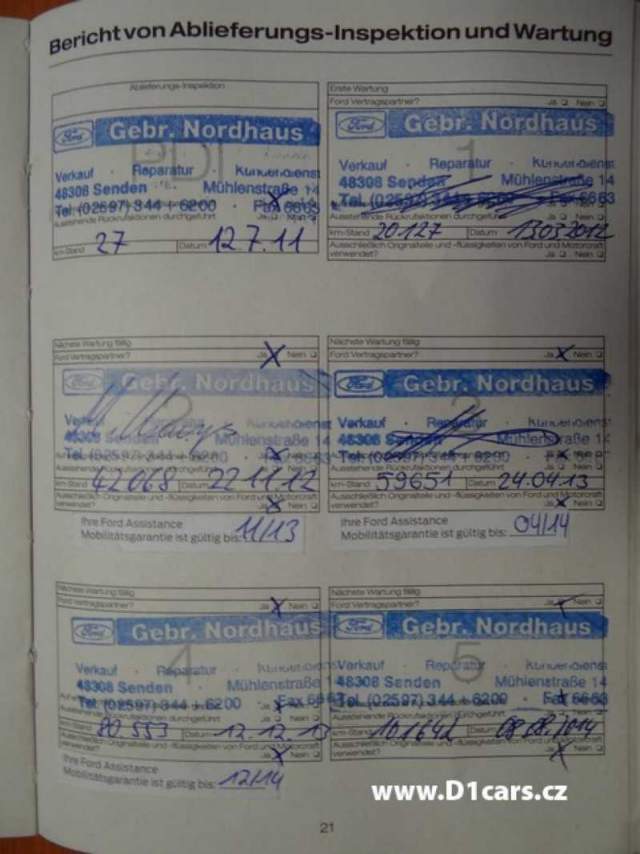 Bericht von Ablieferungs-Inspektion und Wartung
Ablieferungs-Inspektion
Ford Gebr. Nordhaus
PDI
Verkauf · Reparatur · Kundendienst
48308 Senden Mühlenstraße 14
Tel. (02597) 344 + 6200 · Fax 6663
Ausstehende Rückrufaktionen durchgeführt Ja X Nein
km-Stand 27 Datum 12.7.11
Erste Wartung
Ford Vertragspartner? Ja Nein
Ford Gebr. Nordhaus
1
Verkauf · Reparatur · Kundendienst
48308 Senden Mühlenstraße 14
Tel. (02597) 344 + 6200 Fax 6663
Ausstehende Rückrufaktionen durchgeführt Ja Nein
km-Stand 20127 Datum 13032012
Ausschließlich Originalteile und -flüssigkeiten von Ford und Motorcraft
verwendet? Ja Nein
Nächste Wartung fällig
Ford Vertragspartner? Ja X Nein
Ford Gebr. Nordhaus
2
Verkauf Kundendienst
48308 Senden Mühlenstraße 14
Tel. (02597) 344 + 6200 6663
Ausstehende Rückrufaktionen durchgeführt Ja X Nein
km-Stand 42068 Datum 22 11 12
Ausschließlich Originalteile und -flüssigkeiten von Ford und Motorcraft
verwendet? Ja X Nein
Ihre Ford Assistance
Mobilitätsgarantie ist gültig bis: 11/13
Nächste Wartung fällig
Ford Vertragspartner? Ja X Nein
Ford Gebr. Nordhaus
3
Verkauf · Reparatur · Kundendienst
48308 Senden Mühlenstraße 14
Tel. (02597) 344 + 6200
Ausstehende Rückrufaktionen durchgeführt Ja X Nein
km-Stand 59651 Datum 24.04.13
Ausschließlich Originalteile und -flüssigkeiten von Ford und Motorcraft
verwendet? Ja X Nein
Ihre Ford Assistance
Mobilitätsgarantie ist gültig bis: 04/14
Nächste Wartung fällig
Ford Vertragspartner? Ja X Nein
Ford Gebr. Nordhaus
4
Verkauf · Reparatur · Kundendienst
48308 Senden Mühlenstraße 14
Tel. (02597) 344 + 6200 Fax 6663
Ausstehende Rückrufaktionen durchgeführt Ja X Nein
km-Stand 80 553 Datum 12.12.13
Ausschließlich Originalteile und -flüssigkeiten von Ford und Motorcraft
verwendet? Ja X Nein
Ihre Ford Assistance
Mobilitätsgarantie ist gültig bis: 12/14
Nächste Wartung fällig
Ford Vertragspartner? Ja X Nein
Ford Gebr. Nordhaus
5
Verkauf · Reparatur · Kundendienst
48308 Senden Mühlenstraße 14
Tel. (02597) 344 + 6200 · Fax 6663
Ausstehende Rückrufaktionen durchgeführt Ja X Nein
km-Stand Datum 08.08.2014
Ausschließlich Originalteile und -flüssigkeiten von Ford und Motorcraft
verwendet? Ja X Nein
www.D1cars.cz
21